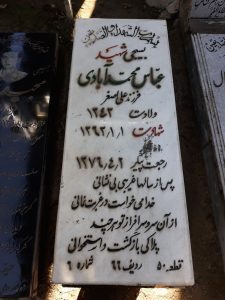 بسیجی شهید
عباس محمدآبادی
فرزند علی اصغر
ولادت ۱۳۴۳
شهادت ۱۳۶۲،۱،۱
رجعت پیکر ۱۳۷۶،۴،۲
پس از سالها غیر بی نشانی
خدا می خواست در غربت نمانی
از آن سرو سرافراز تو هر چند
پلاکی بازگشت و استخوانی
قطعه ۵۰ ردیف ۶۶ شماره ۶